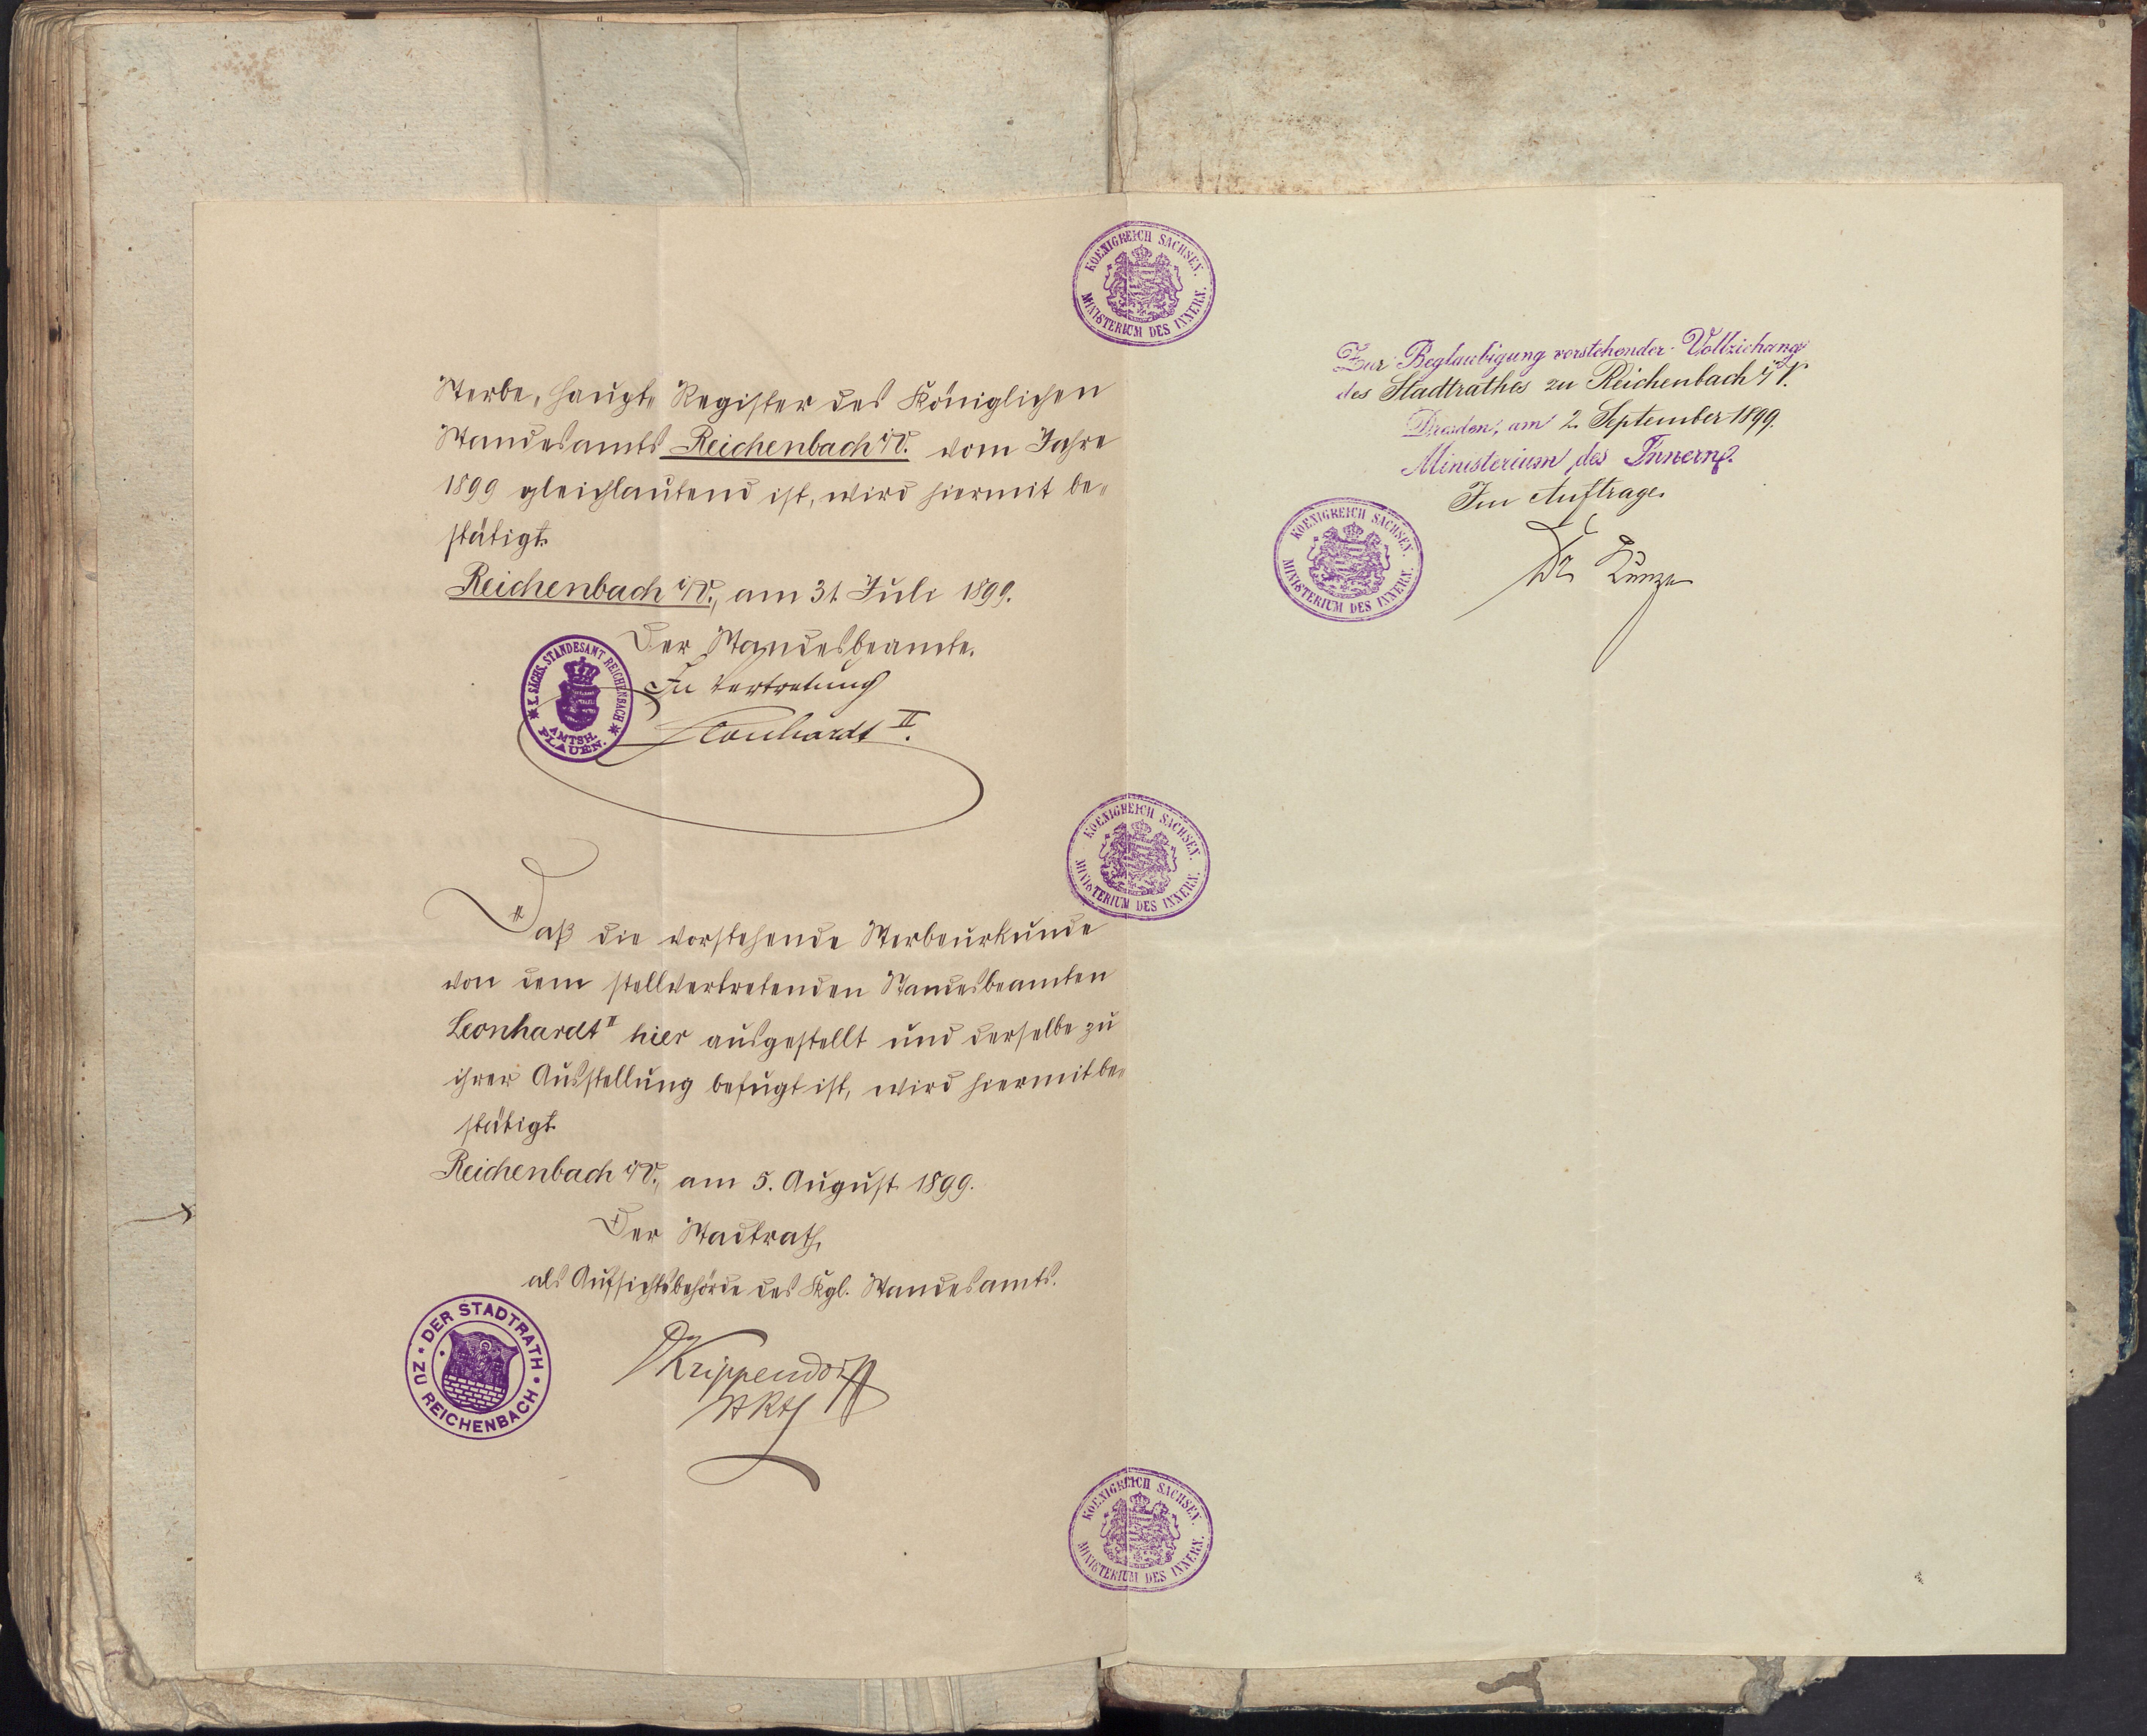 Sterbe-Haupt-Register des Königlichen
Standesamts Reichenbach i/V. vom Jahre
1899 gleichlautend ist, wird hiermit be-
stätigt.
Reichenbach i/V., am 31. Juli 1899.
Der Standesbeamte.
In Vertretung
Leonhardt II.
K. SÄCHS. STANDESAMT REICHENBACH
AMTSH. PLAUEN.
Daß die vorstehende Sterbeurkunde
von dem stellvertretenden Standesbeamten
Leonhardt II hier ausgestellt und derselbe zu
ihrer Ausstellung befugt ist, wird hiermit be-
stätigt.
Reichenbach i/V., am 5. August 1899.
Der Stadtrath,
als Aufsichtsbehörde des Kgl. Standesamts.
DER STADTRATH ZU REICHENBACH
Krippendorff
KOENIGREICH SACHSEN.
MINISTERIUM DES INNERN.
KOENIGREICH SACHSEN.
MINISTERIUM DES INNERN.
KOENIGREICH SACHSEN.
MINISTERIUM DES INNERN.
Zur Beglaubigung vorstehender Vollziehung
des Stadtrathes zu Reichenbach i/V.
Dresden, am 2. September 1899.
Ministerium des Innern.
Im Auftrage.
KOENIGREICH SACHSEN.
MINISTERIUM DES INNERN.
Dr Kunze